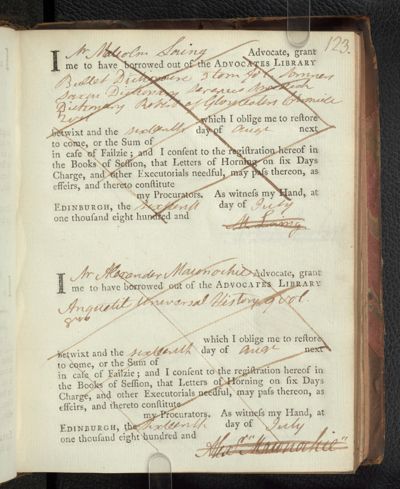 123.
I Mr Malcolm Laing Advocate, grant
me to have borrowed out of the ADVOCATES LIBRARY
Bullet Dictionaire 3 tom fol.
Dictionary
Dictionary Robert of Glocesters Chronicle
which I oblige me to restore
betwixt and the sixteenth day of augt next
to come, or the Sum of
in caſe of Failzie; and I conſent to the regiſtration hereof in
the Books of Seſſion, that Letters of Horning on ſix Days
Charge, and other Executorials needful, may paſs thereon, as
effeirs, and thereto conſtitute
my Procurators. As witneſs my Hand, at
EDINBURGH, the sixteenth day of July
one thouſand eight hundred and
M. Laing
I Mr Alexander Maconochie Advocate, grant
me to have borrowed out of the ADVOCATES LIBRARY
Anquetil Universal History 9 vol.
8vo
which I oblige me to reſtore
betwixt and the sixteenth day of augt next
to come, or the Sum of
in caſe of Failzie; and I conſent to the regiſtration hereof in
the Books of Seſſion, that Letters of Horning on ſix Days
Charge, and other Executorials needful, may paſs thereon, as
effeirs, and thereto conſtitute
my Procurators. As witneſs my Hand, at
EDINBURGH, the sixteenth day of July
one thouſand eight hundred and
Alexr Maconochie